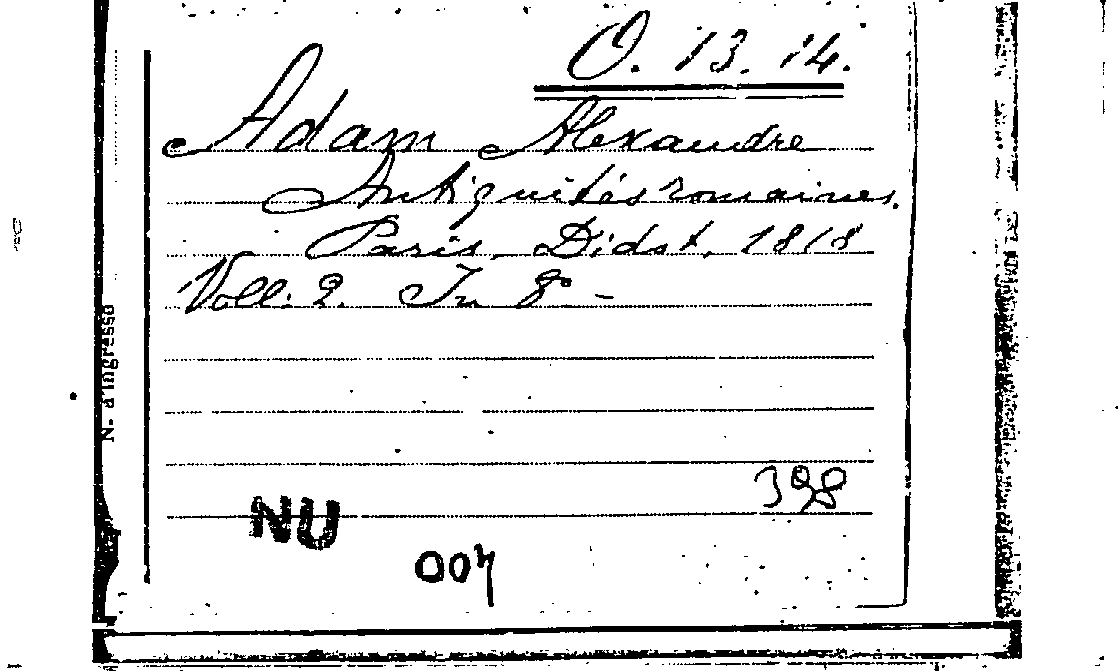 O. 13. 14.
Adam Alexandre
Antiquités romaines.
Paris, Didot, 1818
Voll: 2. In 8° -
N. d'ingresso
398
NU
007